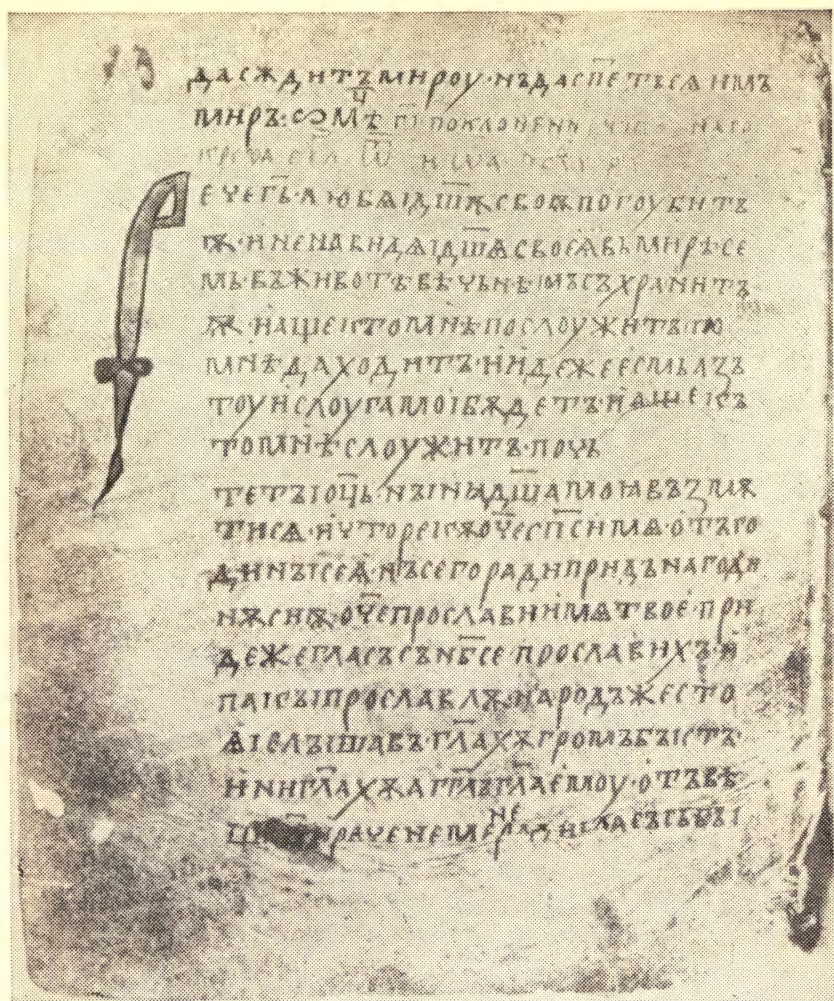 да сѫдитъ мироу· нъ да сп҃етъ сѧ имъ
миръ·
ече г҃ь· любѧі д҃шѫ своѭ погоубитъ
ѭ· и ненавидѧі д҃шѧ своеѧ въ мирѣ се
мь· въ животѣ вѣчьнѣмъ съхранитъ
ѭ· наще кто мнѣ послоужитъ по
мнѣ да ходитъ· и идеже есмь азъ
тоу и слоуга моі бѫдетъ· и аще къ
то мнѣ слоужитъ· почь
тетъ і оц҃ь· нъіни д҃ша моꙗ възмѧ
ти сѧ· и чьто рекѫ о҃че сп҃си мѧ· отъ го
динъі сеѧ· нъ сего ради придъ на годи
нѫ сиѭ· о҃че прослави имѧ твое· при
деже гласъ съ нб҃се· прославихъ· и
пакъі прославлѭ· народъ же сто
ѧі слъішавъ· гл҃ахѫ громъ бъістъ·
ини гл҃ахѫ аг҃глъ гл҃а емоу· отъвѣ
рече не мене ради гласъ сь бъі